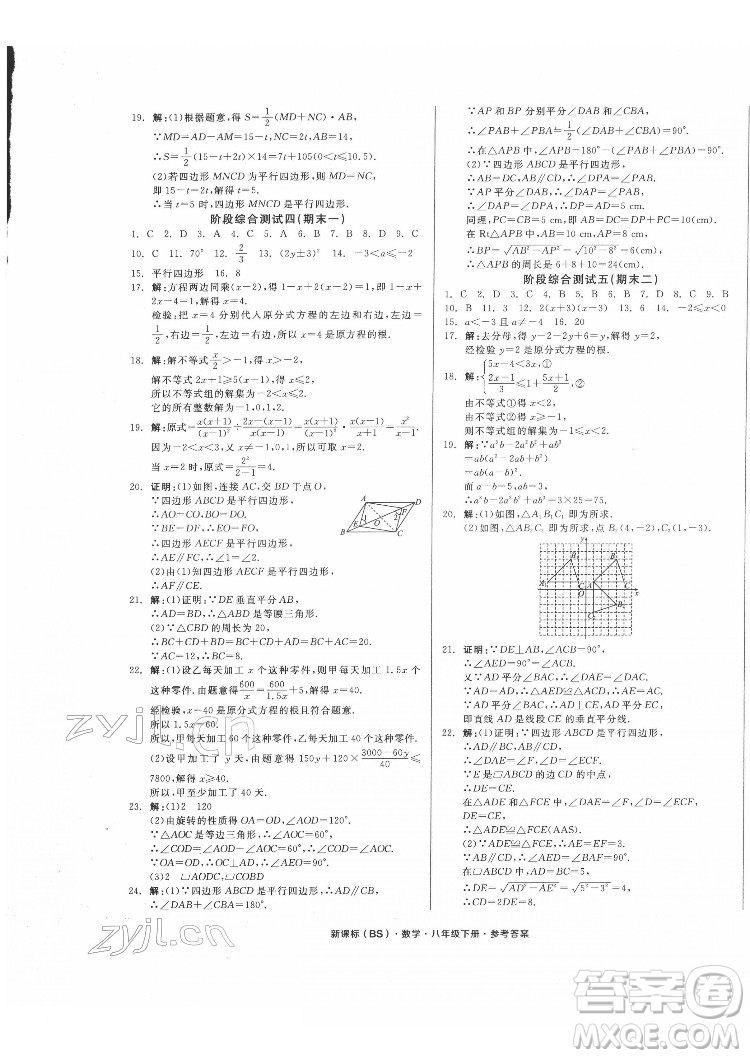 19. 解:(1)根据题意,得 S=1/2(MD+NC)·AB,
∵MD=AD-AM=15-t,NC=2t,AB=14,
∴S=1/2(15-t+2t)×14=7t+105(0<t≤15).
(2)若四边形 MNCD 为平行四边形,则 MD=NC,
即 15-t=2t,解得 t=5.
∴当 t=5时,四边形 MNCD 是平行四边形.
阶段综合测试四(期末一)
1. C 2. D 3. A 4. C 5. A 6. B 7. C 8. D 9. B
10. C 11. 70° 12. 2/3 13. (2y±3)² 14. -3<a≤-2
15. 平行四边形 16. 8
17. 解:方程两边同乘(x-2),得 1-x+2(x-2)=1,即
1-x+2x-4=1,解得 x=4.
检验:把 x=4 分别代入原分式方程的左边和右边,左边=
1/2,右边=1/2,左边=右边,所以 x=4 是原方程的根.
18. 解:解不等式 x/2>-1,得 x>-2,
解不等式 2x+1≥5(x-1),得 x≤2,
所以不等式组的解集为-2<x≤2,
它的所有整数解为-1,0,1,2.
19. 解:原式=x(x+1)/(x-1)²÷2x-(x-1)/x(x-1)=x(x+1)/(x-1)²·x(x-1)/x+1=x²/x-1.
因为-2<x<3,又 x≠±1 且 x≠0,x 为整数,所以 x=2.
当 x=2 时,原式=2²/2-1=4.
20. 证明:(1)如图,连接 AC 交 BD 于点 O,
∵四边形 ABCD 是平行四边形,
∴AO=CO,BO=DO.
∵BE=DF,∴EO=FO.
∴四边形 AECF 是平行四边形,
∴AE∥FC,∴∠1=∠2.
(2)由(1)知四边形 AECF 是平行四边形,
∴AF∥CE.
21. 解:(1)证明:∵DE 垂直平分 AB,
∴AD=BD,∴△ABD 是等腰三角形.
(2)∵△CBD 的周长为 20,
∴BC+CD+BD=BC+CD+AD=BC+AC=20.
∵AC=12,∴BC=8.
22. 解:(1)设乙每天加工 x 个这种零件,则甲每天加工 1.5x 个
这种零件.由题意,得600/x=600/1.5x+5,解得 x=40.
经检验,x=40 是原分式方程的根且符合题意.
∴1.5x=60.
答:甲每天加工60个这种零件,乙每天加工40个这种零件.
(2)设甲加工了 y 天,则由题意得 150y+120×3000-60y/40≤
7800,解得 y≥40.
答:甲至少加工了 40 天.
23. 解:(1)2 120
(2)由旋转的性质得 OA=OD,∠AOD=120°.
∵△AOC 是等边三角形,∴∠AOC=60°,
∴∠COD=∠AOD-∠AOC=60°,∴∠COD=∠AOC.
又∵OA=OD,∴OC⊥AD,∴∠AEO=90°.
(3)2 ▱AODC ▱COBD
24. 解:(1)∵四边形 ABCD 是平行四边形,
∴AD∥CB,AB∥CD,∴∠DAB+∠CBA=180°.
∵AP 和 BP 分别平分∠DAB 和∠CBA,
∴∠PAB+∠PBA=1/2(∠DAB+∠CBA)=90°.
∴在△APB 中,∠APB=180°-(∠PAB+∠PBA)=90°.
(2)∵四边形 ABCD 是平行四边形,
∴AB=DC,AB∥CD,∴∠PAB=∠DPA.
∵∠DAP=∠PAB,∴∠DAP=∠DPA,
∴△ADP 是等腰三角形,∴AD=DP=5 cm.
同理,PC=CB=5 cm,即 AB=DC=DP+PC=10 cm.
在 Rt△APB 中,∵AB=10 cm,AP=8 cm,
∴BP=√AB²-AP²=√10²-8²=6(cm),
∴△APB 的周长是 6+8+10=24(cm).
阶段综合测试五(期末二)
1. C 2. D 3. B 4. C 5. D 6. A 7. D 8. C 9. B
10. B 11. 3 12. 2(x+3)(x-3) 13. 6 14. -2<x<0
15. a<-3 且 a≠-4 16. 20
17. 解:去分母,得 y-2=2y-6,解得 y=4,
经检验,y=4 是原分式方程的根.
18. 解:{5x-4<3x,①
2x-1/3≤1+5x+1/2.②
由不等式①得 x<2,
由不等式②得 x≥-1,
则不等式组的解集为-1≤x<2.
19. 解:∵a³b-2a²b²+ab³
=ab(a²-2ab+b²)
=ab(a-b)²,
而 a-b=5,ab=3,
∴a³b-2a²b²+ab³=3×25=75.
20. 解:(1)如图,△A₁B₁C₁ 即为所求.
(2)如图,△AB₂C₂ 即为所求,点 B₂(4,-2),C₂(1,-3).
21. 证明:∵DE⊥AB,∴∠AED=90°=∠ACB.
又∵AD 平分∠BAC,∴∠DAE=∠DAC.
∵AD=AD,∴△AED≌△ACD,∴AE=AC.
∵AD 平分∠BAC,∴AD⊥CE,AD 平分线段 EC,
即直线 AD 是线段 CE 的垂直平分线.
22. 解:(1)证明:∵四边形 ABCD 是平行四边形,
∴AD∥BC,AB∥CD,
∴∠DAE=∠F,∠D=∠ECF.
∵E是▱ABCD 的边 CD 的中点,
∴DE=CE.
在△ADE 和△FCE 中,∠DAE=∠F,∠D=∠ECF,
DE=CE,
∴△ADE≌△FCE(AAS).
(2)∵△ADE≌△FCE,∴AE=EF=3.
∵AB∥CD,∴∠AED=∠BAF=90°.
在▱ABCD 中,AD=BC=5,
∴DE=√AD²-AE²=√5²-3²=4,
∴CD=2DE=8.
新课标(BS)·数学·八年级下册·参考答案
zyjl.cn
zyjl.cn
答案圈
MXQE.COM